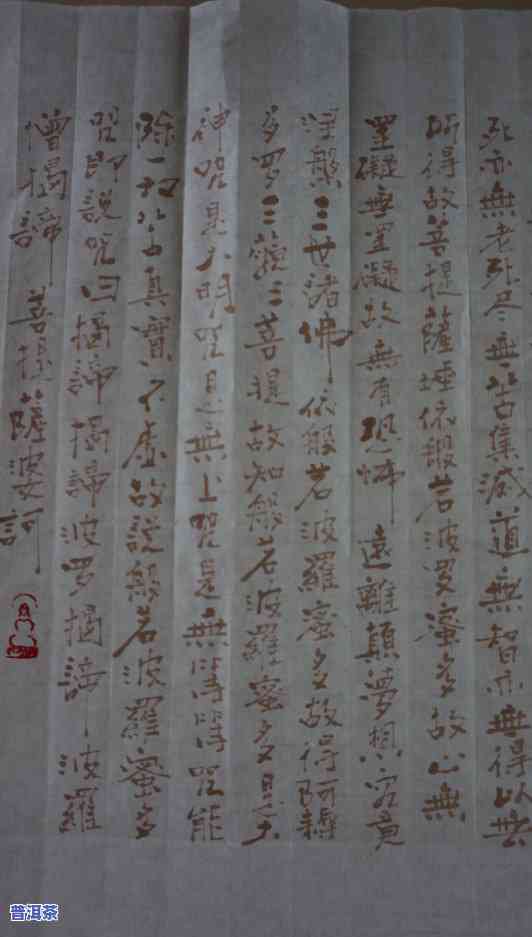 死亦無老死尽無苦集滅道無智亦無得以無
所得故菩提薩埵依般若波罗蜜多故心無
罣礙無罣礙故無有恐怖遠離顛夢想究竟
涅槃三世諸佛依般若波羅蜜多故得阿耨
多罗三藐三菩提故知般若波羅蜜多是大
神咒是大明咒是無上咒是無等等咒能
除一切苦真實不虚故説般若波羅蜜多
咒即説咒曰揭諦揭諦波罗揭諦波羅
僧揭諦菩提薩婆訶
普洱茶